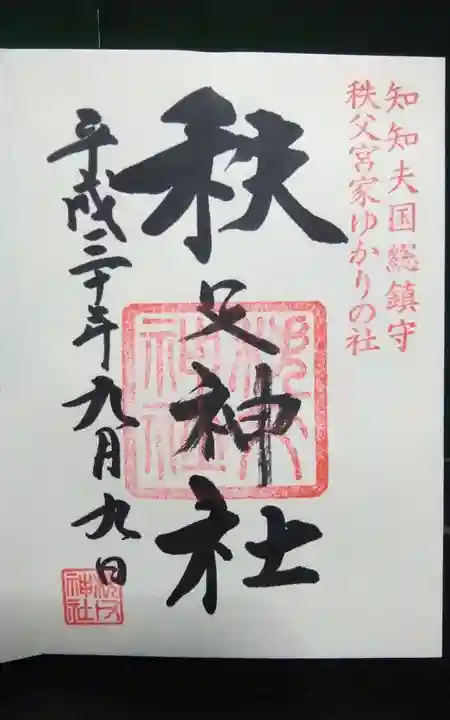 知知夫国総鎮守
秩父宮家ゆかりの社
秩父神社
平成三十年九月九日
秩父神社
秩父神社